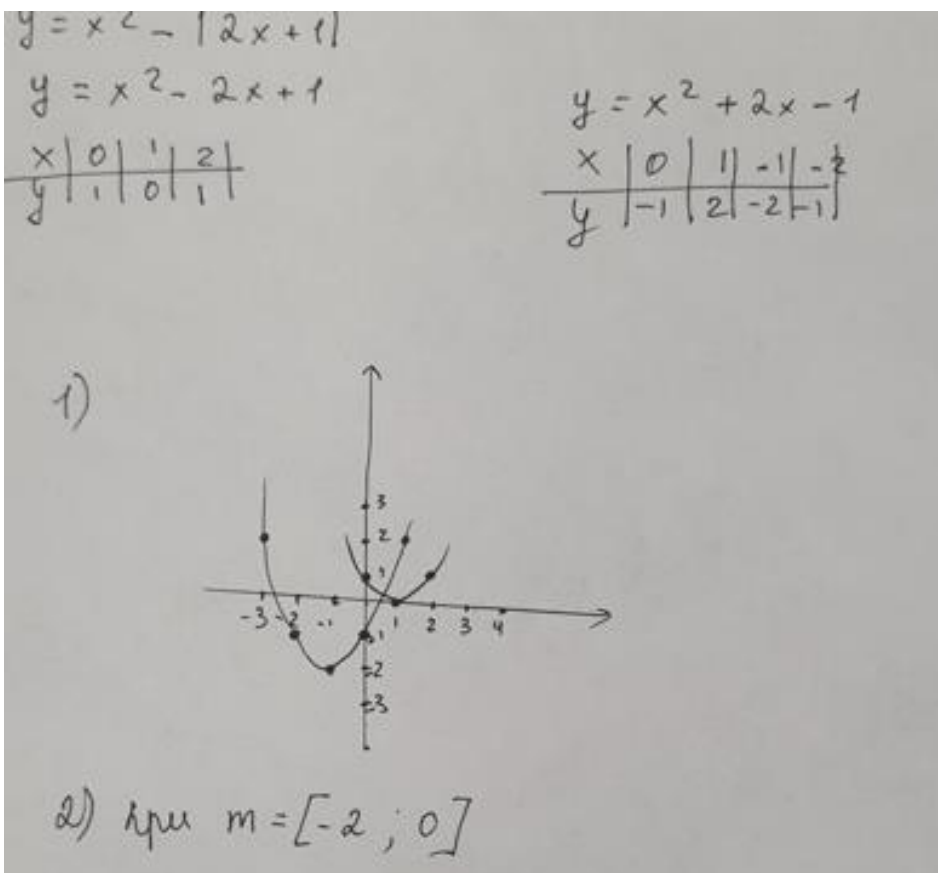 y = x² - |2x+1|
y = x² - 2x+1
x | 0 | 1 | 2 |
y | 1 | 0 | 1 |
y = x² + 2x - 1
x | 0 | 1 | -1 | -2
y | -1 | 2 | -2 | -1 |
1)
3
2
1
-3 -2 -1 1 2 3 4
-1
-2
-3
2) при m = [-2 ; 0]